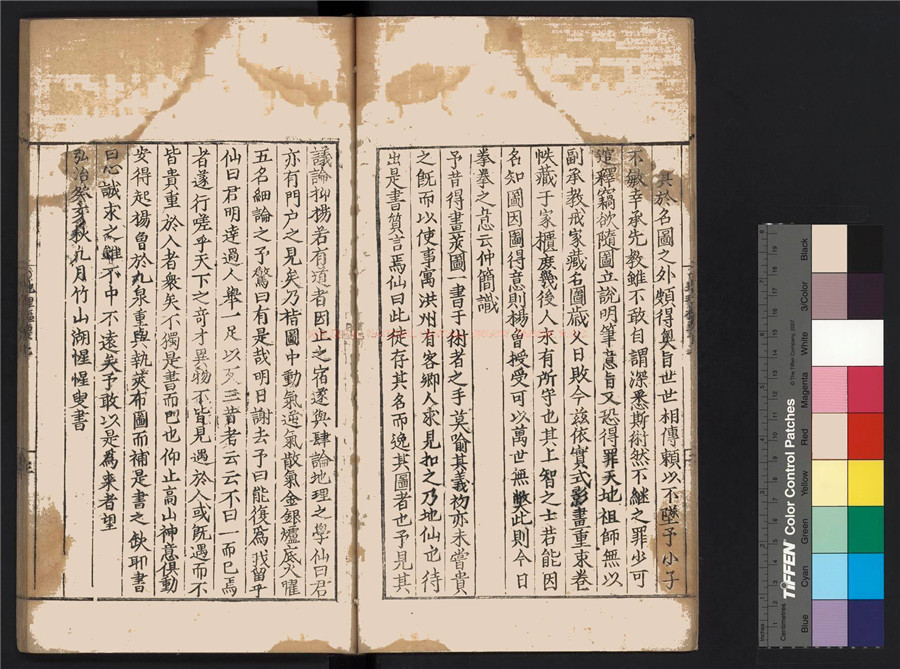 其於名圖之外頗得奧旨世世相傳賴以不墜予小子
不敏幸承先教雖不敢自謂深悉斯術然不繼之罪少可
逭釋竊欲隨圖立說明筆意旨又恐得罪天地祖師無以
副承教戒家藏名圖歲久日敗今茲依實式影畫重束卷
帙藏于家櫃庶幾後人永有所守也其上智之士若能因
名知圖因圖得意則楊曾授受可以萬世無弊此則今日
拳拳之意云仲簡識
予昔得畫莢圖一書于術者之手莫喻其義初亦未嘗貴
之既而以使事寓洪州有客鄉人求見扣之乃地仙也待
出是書質言焉仙曰此徒存其名而逸其圖者也予見其
議論抑揚若有道者因止之宿遂與肆論地理之學仙曰君
亦有門戶之見矣乃指圖中動氣逆氣散氣金銀爐底火腥
五名細論之予驚曰有是哉明日謝去予曰能復為我留乎
仙曰君明達過人舉一足以反三昔者云云不曰一而已焉
者遂行嗟乎天下之奇才異物不皆見遇於人或既遇而不
皆貴重於人者衆矣不獨是書而已也仰止高山神意俱動
安得起楊曾於九泉重與執莢布圖而補是書之缺耶書
曰心誠求之雖不中不遠矣予敢以是為來者望
弘治癸亥秋九月竹山湖惺惺叟書
Inches
Centimetres
TIFFEN Color Control Patches
© The Tiffen Company, 2007
Blue
Cyan
Green
Yellow
Red
Magenta
White
3/Color
Black